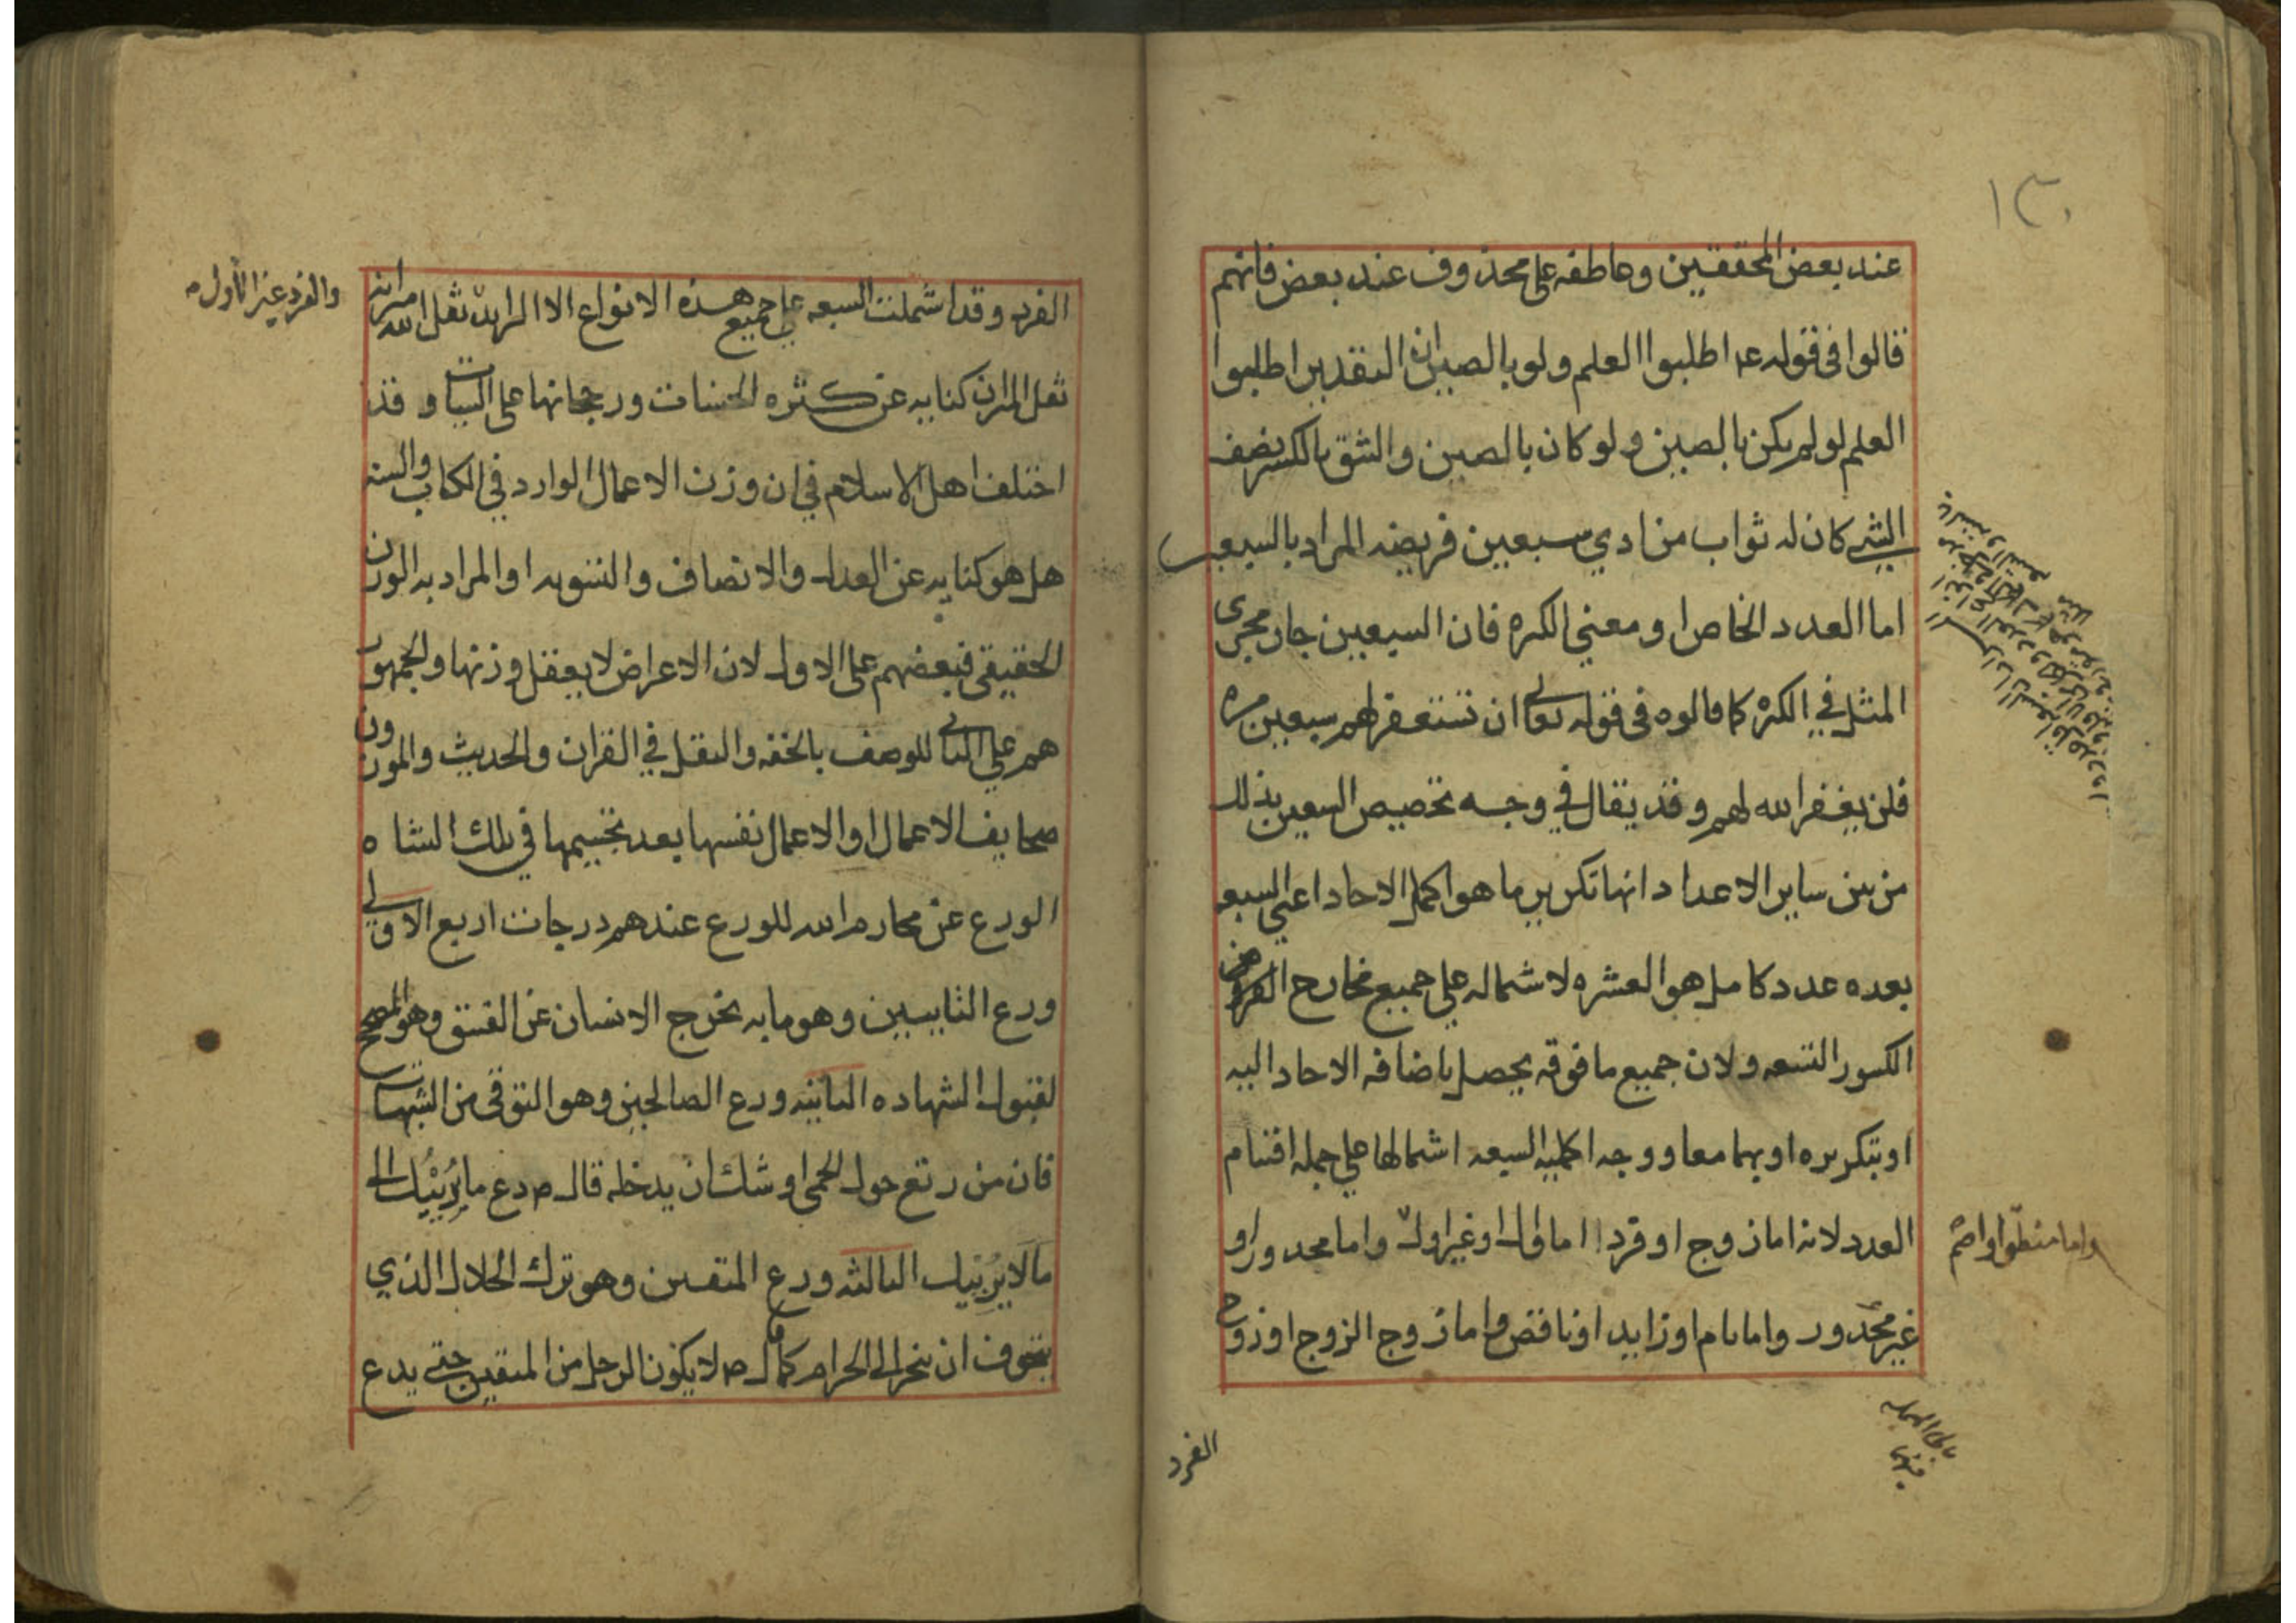 ١٣٠
عند بعض المحققين وعاطفه على محذوف عند بعض فانهم
قالوا فى قوله عم اطلبوا العلم ولو بالصين ان التقدير اطلبوا
العلم لو لم يكن بالصين ولو كان بالصين والشق بالكسر نصف
الشى كان له ثواب من ادي سبعين فريضه المراد بالسبعين
اما العدد الخاص او معني الكثره فان السبعين جار مجرى
المثل في الكثره كما قالوه فى قوله تعالى ان تستغفر لهم سبعين مره
فلن يغفر الله لهم وقد يقال في وجه تخصيص السبعين بذلك
من بين ساير الاعداد انها تكرير ما هو اكمل الاحاد اعني السبعه
بعده عدد كامل هو العشره لاشماله علي جميع مخارج
الكسور التسعه ولان جميع ما فوقه يحصل باضافه الاحاد اليه
او بتكريره او بهما معا ووجه اكمليه السبعه اشمالها علي جمله اقسام
العدد لانه اما زوج او فرد اما اول او غير اول واما مجدور او
واما منطق او اصم
غير مجدور واما تام او زايد او ناقص واما زوج الزوج او زوج
الفرد
الفرد وقد اشملت السبعه علي جميع هذه الانواع الا الزايد ثقل الله ميزانه
والفرد غير الأول
ثقل الميزان كنايه عن كثره الحسنات ورجحانها على السيات وقد
اختلف اهل الاسلام في ان وزن الاعمال الوارد في الكتاب والسنه
هل هو كنايه عن العدل والانصاف والتسويه او المراد به الوزن
الحقيقى فبعضهم على الاول لان الاعراض لا يعقل وزنها والجمهور
هم علي الثانى للوصف بالخفه والثقل في القران والحديث والموزون
صحايف الاعمال او الاعمال نفسها بعد تجسيمها في تلك النشاه
الورع عن محارم الله للورع عندهم درجات اربع الاولى
ورع التايبين وهو ما به يخرج الانسان عن الفسق وهو المصحح
لقبول الشهاده الثانيه ورع الصالحين وهو التوقى من الشبهات
فان من رتع حول الحمى اوشك ان يدخله قال ص دع ما يُريبك الى
ما لا يُريبك الثالثه ورع المتقين وهو ترك الحلال الذي
يتخوف ان ينجر الى الحرام كما قال ص لا يكون الرجل من المتقين حتى يدع